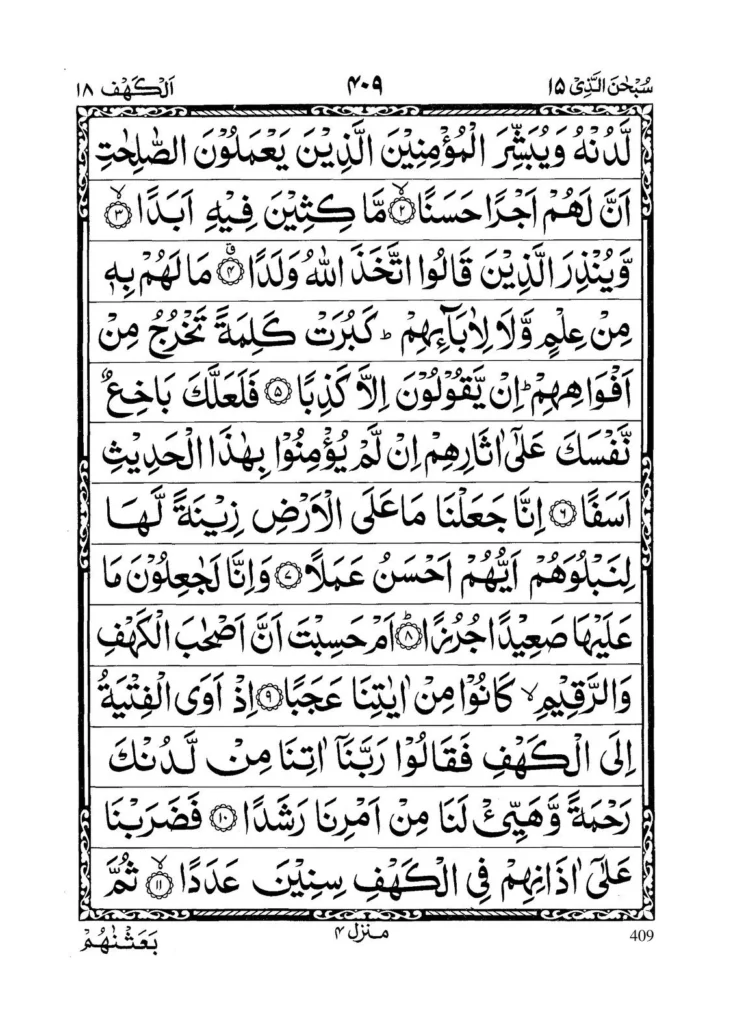 سُبْحٰنَ الَّذِیْۤ ۱۵ ۴۰۹ اَلْكَهْف ۱۸
لَّدُنْهُ وَیُبَشِّرَ الْمُؤْمِنِیْنَ الَّذِیْنَ یَعْمَلُوْنَ الصّٰلِحٰتِ
اَنَّ لَهُمْ اَجْرًا حَسَنًا ۙ﴿۲﴾ مَّا كِثِیْنَ فِیْهِ اَبَدًا ۙ﴿۳﴾
وَّیُنْذِرَ الَّذِیْنَ قَالُوا اتَّخَذَ اللّٰهُ وَلَدًا ۗ﴿۴﴾ مَا لَهُمْ بِهٖ
مِنْ عِلْمٍ وَّلَا لِاٰبَآئِهِمْ ؕ كَبُرَتْ كَلِمَةً تَخْرُجُ مِنْ
اَفْوَاهِهِمْ ؕ اِنْ یَّقُوْلُوْنَ اِلَّا كَذِبًا ﴿۵﴾ فَلَعَلَّكَ بَاخِعٌ
نَّفْسَكَ عَلٰۤی اٰثَارِهِمْ اِنْ لَّمْ یُؤْمِنُوْا بِهٰذَا الْحَدِیْثِ
اَسَفًا ﴿۶﴾ اِنَّا جَعَلْنَا مَا عَلَی الْاَرْضِ زِیْنَةً لَّهَا
لِنَبْلُوَهُمْ اَیُّهُمْ اَحْسَنُ عَمَلًا ﴿۷﴾ وَاِنَّا لَجٰعِلُوْنَ مَا
عَلَیْهَا صَعِیْدًا جُرُزًا ؕ﴿۸﴾ اَمْ حَسِبْتَ اَنَّ اَصْحٰبَ الْكَهْفِ
وَالرَّقِیْمِ ۙ كَانُوْا مِنْ اٰیٰتِنَا عَجَبًا ﴿۹﴾ اِذْ اَوَی الْفِتْیَةُ
اِلَی الْكَهْفِ فَقَالُوْا رَبَّنَاۤ اٰتِنَا مِنْ لَّدُنْكَ
رَحْمَةً وَّهَیِّئْ لَنَا مِنْ اَمْرِنَا رَشَدًا ﴿۱۰﴾ فَضَرَبْنَا
عَلٰۤی اٰذَانِهِمْ فِی الْكَهْفِ سِنِیْنَ عَدَدًا ۙ﴿۱۱﴾ ثُمَّ
409 منزل ۴ بَعَثْنٰهُمْ